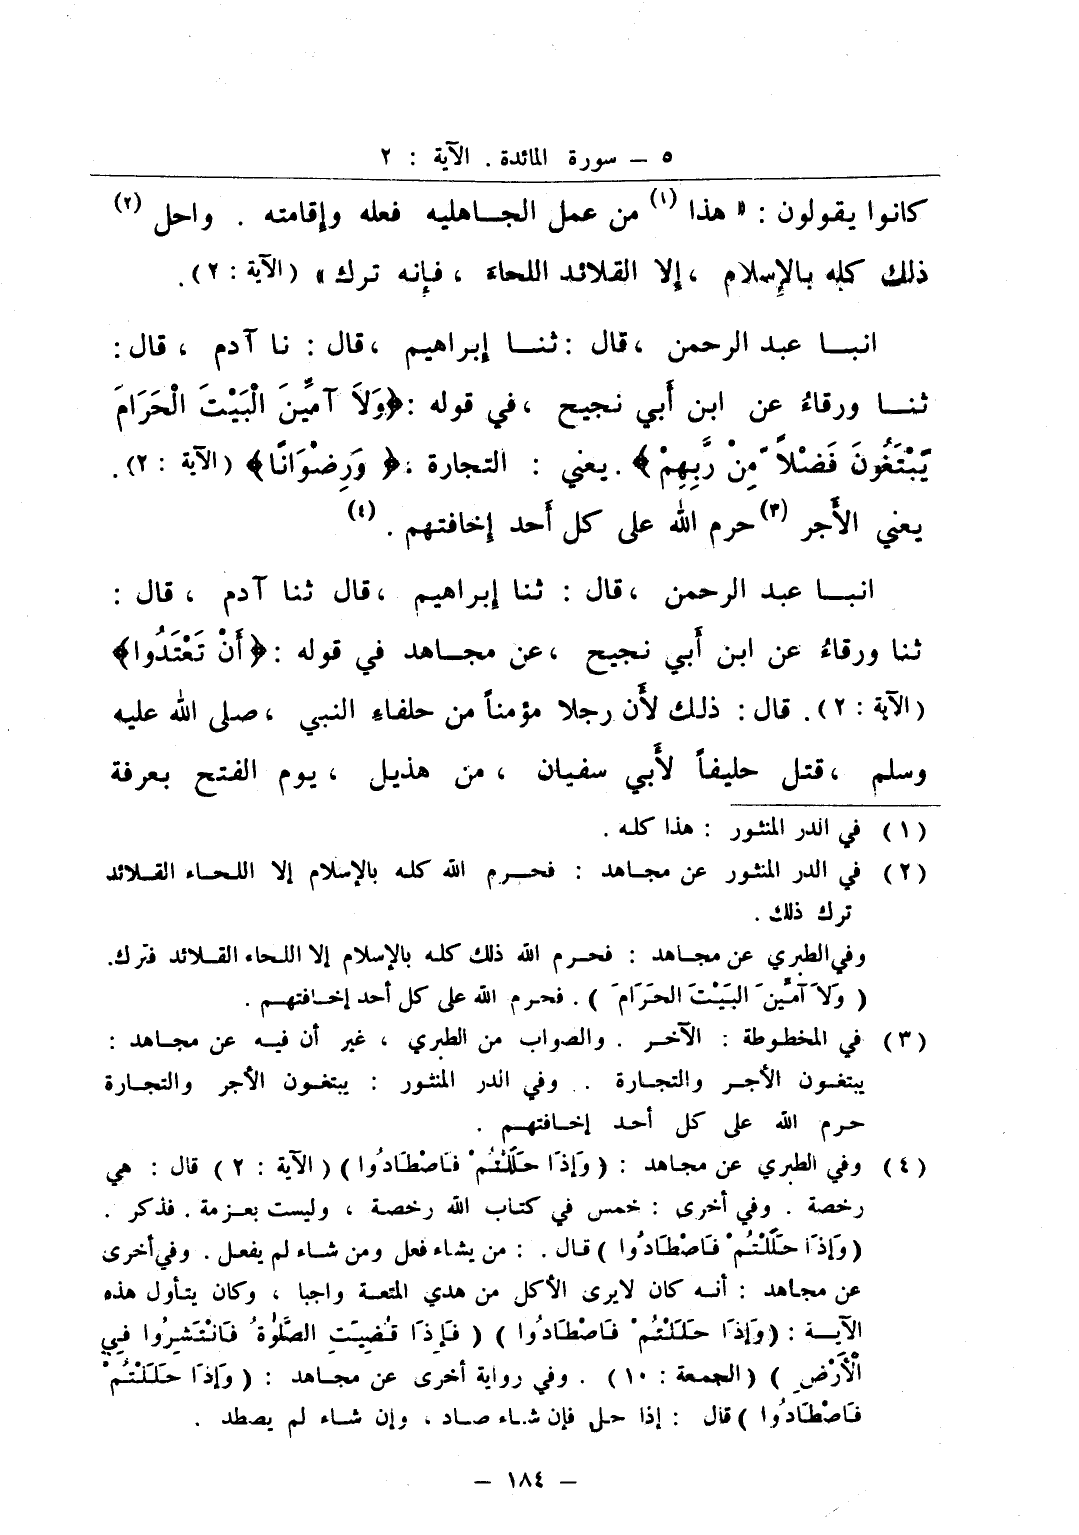 ٥ — سورة المائدة . الآية : ٢
كانوا يقولون : « هذا (١) من عمل الجاهليه فعله وإقامته . واحل (٢)
ذلك كله بالإسلام ، إلا القلائد اللحاءَ ، فإنه ترك » ( الآية : ٢ ) .
انبا عبد الرحمن ، قال : ثنا إبراهيم ، قال : نا آدم ، قال :
ثنا ورقاءُ عن ابن أَبي نجيح ، في قوله : ﴿وَلاَ آمِّينَ الْبَيْتَ الْحَرَامَ
يَبْتَغُونَ فَضْلاً مِنْ رَّبِهِمْ﴾ . يعني : التجارة ، ﴿ وَرِضْوَانًا﴾ ( الآية : ٢ ) .
يعني الأَجر (٣) حرم الله على كل أَحد إخافتهم . (٤)
انبا عبد الرحمن ، قال : ثنا إبراهيم ، قال ثنا آدم ، قال :
ثنا ورقاءُ عن ابن أَبي نجيح ، عن مجاهد في قوله : ﴿أَنْ تَعْتَدُوا﴾
( الآية : ٢ ) . قال : ذلك لأَن رجلا مؤمناً من حلفاءِ النبي ، صلى الله عليه
وسلم ، قتل حليفاً لأَبي سفيان ، من هذيل ، يوم الفتح بعرفة
( ١ ) في الدر المنثور : هذا كله .
( ٢ ) في الدر المنثور عن مجاهد : فحرم الله كله بالإسلام إلا اللحاء القلائد
ترك ذلك .
وفي الطبري عن مجاهد : فحرم الله ذلك كله بالإسلام إلا اللحاء القلائد فترك.
( وَلاَ آمِّينَ البَيْتَ الحَرَامَ ) . فحرم الله على كل أحد إخافتهم .
( ٣ ) في المخطوطة : الآخر . والصواب من الطبري ، غير أن فيه عن مجاهد :
يبتغون الأجر والتجارة . وفي الدر المنثور : يبتغون الأجر والتجارة
حرم الله على كل أحد إخافتهم .
( ٤ ) وفي الطبري عن مجاهد : ( وَإذَا حَلَلْتُمْ فَاصْطَادُوا ) ( الآية : ٢ ) قال : هي
رخصة . وفي أخرى : خمس في كتاب الله رخصة ، وليست بعزمة . فذكر .
( وَإذَا حَلَلْتُمْ فَاصْطَادُوا ) قال . : من يشاء فعل ومن شاء لم يفعل . وفي أخرى
عن مجاهد : أنه كان لايرى الأكل من هدي المتعة واجبا ، وكان يتأول هذه
الآية : ( وَإذَا حَلَلْتُمْ فَاصْطَادُوا ) ( فَإذَا قُضِيَتِ الصَّلٰوةُ فَانْتَشِرُوا فِي
الْأَرْضِ ) ( الجمعة : ١٠ ) . وفي رواية أخرى عن مجاهد : ( وَإذَا حَلَلْتُمْ
فَاصْطَادُوا ) قال : إذا حل فإن شاء صاد ، وإن شاء لم يصطد .
— ١٨٤ —